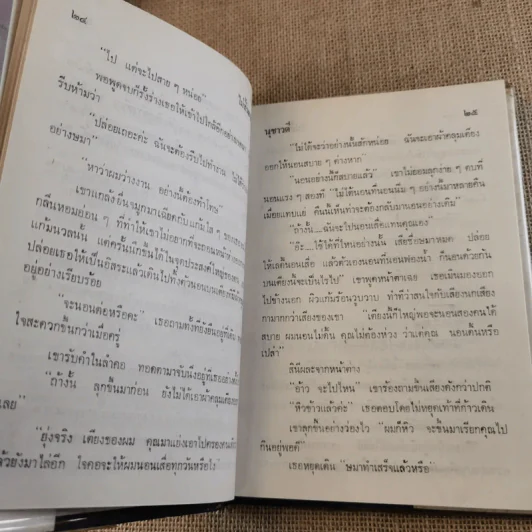 ๒๔
"ไป แต่จะไปสาย ๆ หน่อย"
พอพูดจบก็รั้งร่างเธอให้เข้าไปใกล้อีก
รีบห้ามว่า
"ปล่อยเถอะค่ะ ฉันจะต้องรีบไปทำงาน
อย่างษมา"
"หาว่าผมว่างงาน อย่างนี้ต้องทำโทษ"
เขาแกล้งยื่นจมูกมาเฉียดกับแก้มใส ๆ ของ
กลิ่นหอมอ่อน ๆ ที่ทำให้เขาไม่อยากที่จะถอน
แก้มนวลนั้น แต่ครั้นนึกขึ้นได้ในจุดประสงค์ใหญ่
ปล่อยเธอให้เป็นอิสระแล้วเดินไปทิ้งตัวนอนบนเตียง
อยู่อย่างเรียบร้อย
"จะนอนต่อหรือคะ" เธอถามทั้งที่ยังยืนอยู่ที่เดิม
ใจสะดวกขึ้นกว่าเมื่อครู่
เขารับคำในลำคอ ทอดตามาจับนิ่งอยู่ที่
"ถ้างั้น ลุกขึ้นมาก่อน ยังไม่ได้เอาผ้าคลุมเตียง
เลย"
"ยุ่งจริง เตียงของผม คุณมาแย่งเอาไปครอง
แล้วยังมาไล่อีก ใจคอจะให้ผมนอนเสื่อทุกวันหรือไง"
๒๕
นุชาวดี
"ไม่ได้จะว่าอย่างนั้นสักหน่อย ฉันจะเอาผ้าคลุมเตียง
ออกให้นอนสบาย ๆ ต่างหาก"
"นอนอย่างนี้ก็สบายแล้ว" เขาไม่ยอมลุกง่าย ๆ
นอนแรง ๆ สองที "ไม่ได้นอนที่นอนนิ่ม ๆ อย่างนี้มาหลายคืน
เมื่อยแทบแย่ คืนนี้เห็นทีจะต้องกลับมานอนอย่างเดิม"
"ถ้างั้น....ฉันจะไปนอนเสื่อแทนคุณเอง"
"อ๊ะ....ใช้ได้ที่ไหนอย่างนั้น เสียชื่อษมาหมด ปล่อย
ให้เธอนอนเสื่อ แล้วตัวเองนอนที่นอนฟองน้ำ ก็นอนด้วยกัน
บนเตียงนี้จะเป็นไรไป" เขาพูดหน้าตาเฉย เธอเมินมองออก
ไปข้างนอก ผิวแก้มร้อนวูบวาบ ทำทีว่าสนใจกับเสียงนกเสียง
กามากกว่าเสียงของเขา "เตียงนี้ก็ใหญ่พอจะนอนสองคนได้
สบาย ผมนอนไม่ดิ้น คุณไม่ต้องห่วง ว่าแต่คุณ นอนดิ้นหรือ
เปล่า"
สินีผละจากหน้าต่าง
"อ้าว จะไปไหน" เขาร้องถามขึ้นเสียงดังกว่าปกติ
"หิวข้าวแล้วค่ะ" เธอตอบโดยไม่หยุดเท้าที่ก้าวเดิน
เขาลุกขึ้นอย่างว่องไว "ผมก็หิว จะขึ้นมาเรียกคุณไป
กินอยู่พอดี"
เธอหยุดเดิน "ษมาทำเสร็จแล้วหรือ"